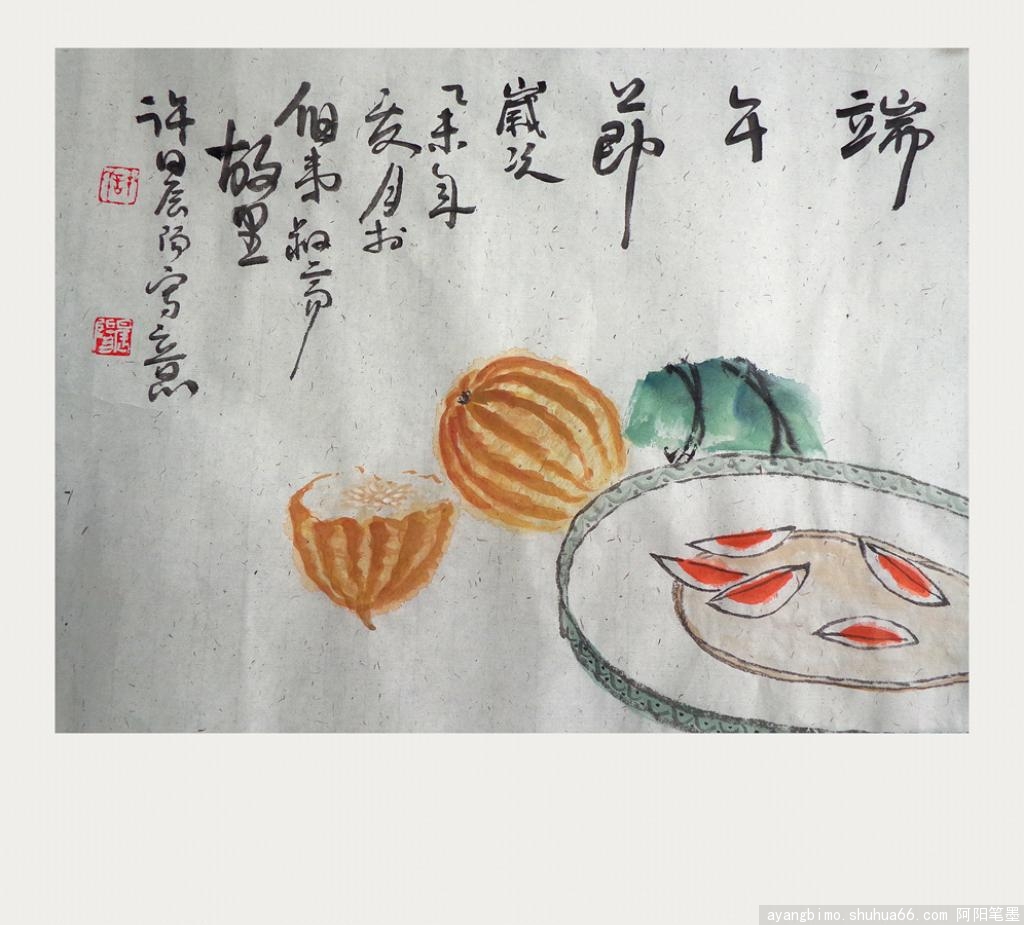 端午節
歲次
乙未年
夏月於
伯夷叔齊
故里
許晨阳寫意
ayangbimo.shuhua66.com 阿阳笔墨